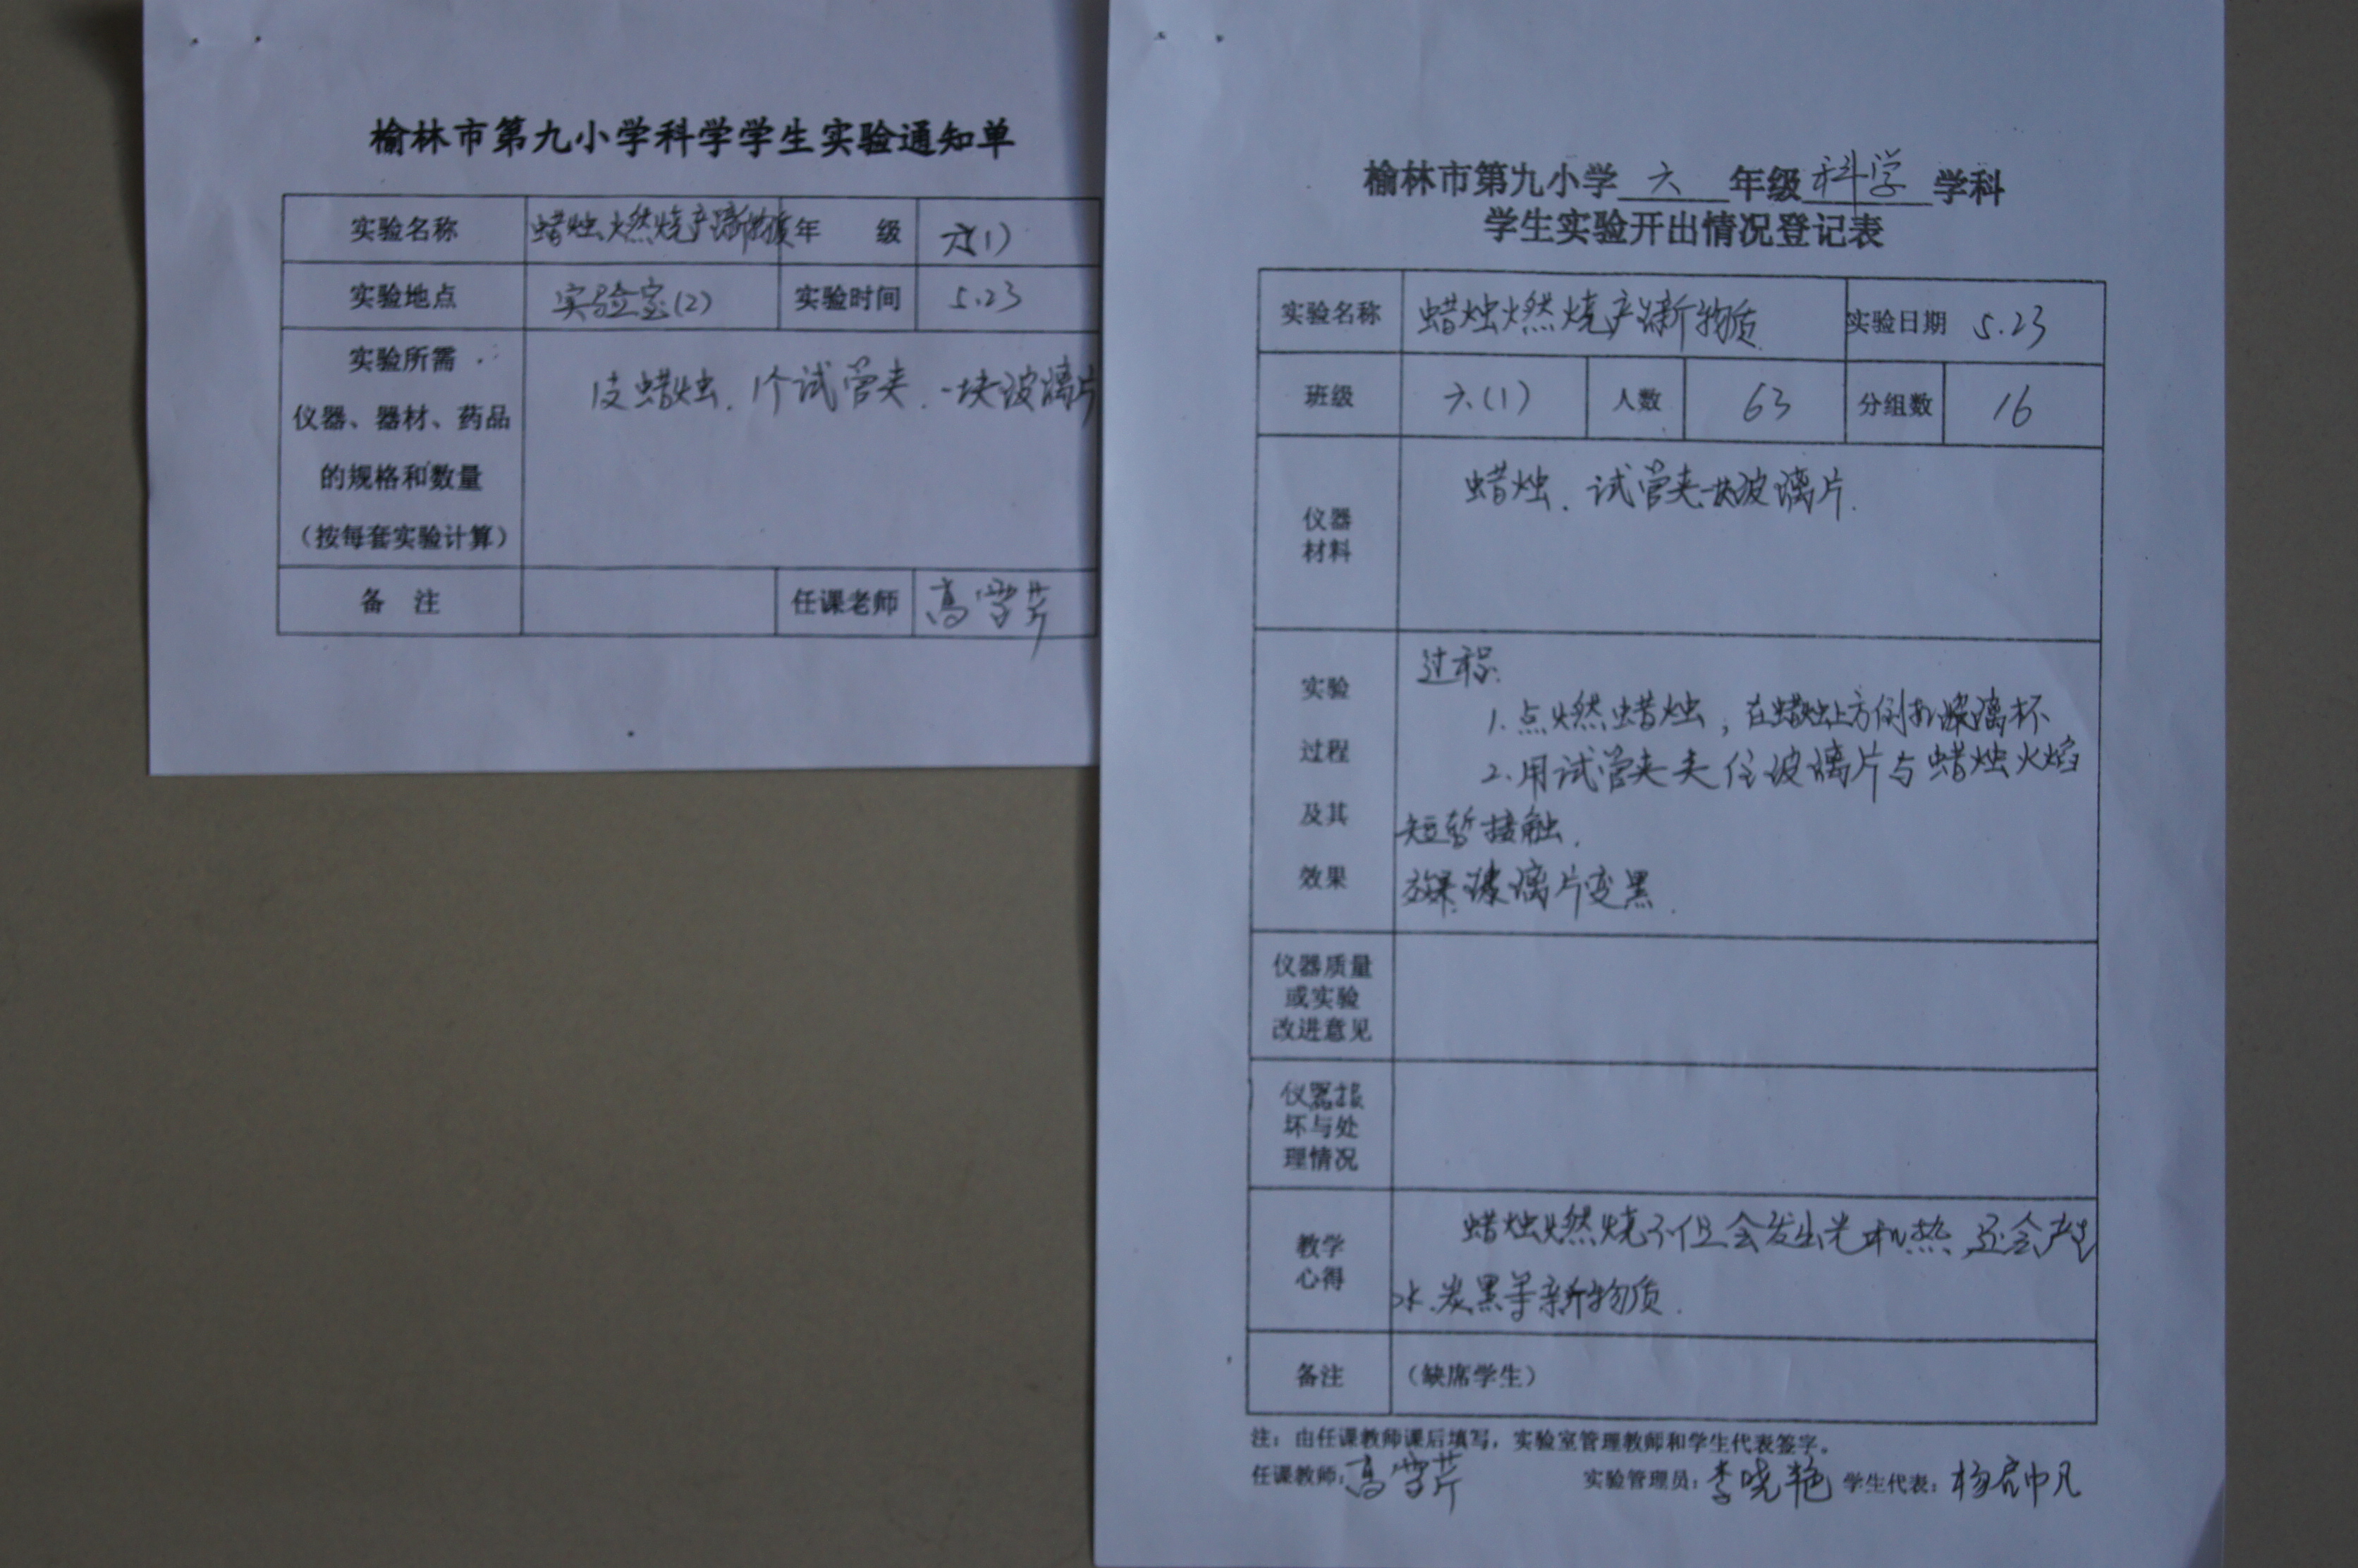 榆林市第九小学科学学生实验通知单
实验名称 蜡烛燃烧产新物质 年 级 六(1)
实验地点 实验室(2) 实验时间 5.23
实验所需
仪器、器材、药品
的规格和数量
(按每套实验计算)
1支蜡烛、1个试管夹、一块玻璃片
备 注 任课老师 高雪芹
榆林市第九小学 六 年级 科学 学科
学生实验开出情况登记表
实验名称 蜡烛燃烧产新物质 实验日期 5.23
班级 六(1) 人数 63 分组数 16
仪器
材料
蜡烛、试管夹、一块玻璃片.
实验
过程
及其
效果
过程:
1.点燃蜡烛,在蜡烛上方倒扣玻璃杯
2.用试管夹夹住玻璃片与蜡烛火焰
短暂接触.
效果:玻璃片变黑.
仪器质量
或实验
改进意见
仪器损
坏与处
理情况
教学
心得
蜡烛燃烧不但会发出光和热,还会产生
水、炭黑等新物质.
备注 (缺席学生)
注:由任课教师课后填写,实验室管理教师和学生代表签字。
任课教师:高雪芹 实验管理员:李晓艳 学生代表:杨